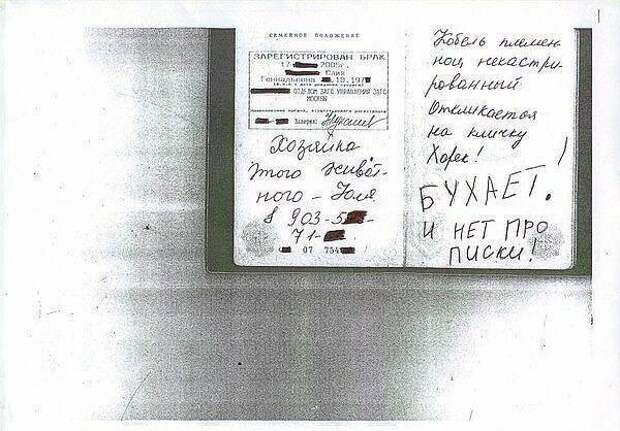 СЕМЕЙНОЕ ПОЛОЖЕНИЕ
ЗАРЕГИСТРИРОВАН БРАК
17 2005г.
Юлия
Геннадьевна 10.197
ОТДЕЛОМ ЗАГС УПРАВЛЕНИЯ ЗАГС
МОСКВЫ
Заверил:
Хозяйка
этого живот-
ного - Юля
8 903-5
71-
07 754
Кобель племен
ной некастри-
рованный
Откликается
на кличку
Хорек!
БУХАЕТ!
И НЕТ ПРО
ПИСКИ!